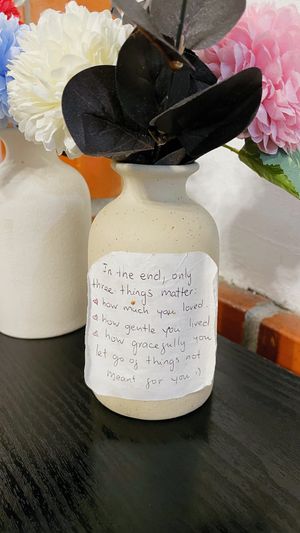 In the end, only
three things matter:
how much you loved.
how gentle you lived
& how gracefully you
let go of things not
meant for you :)